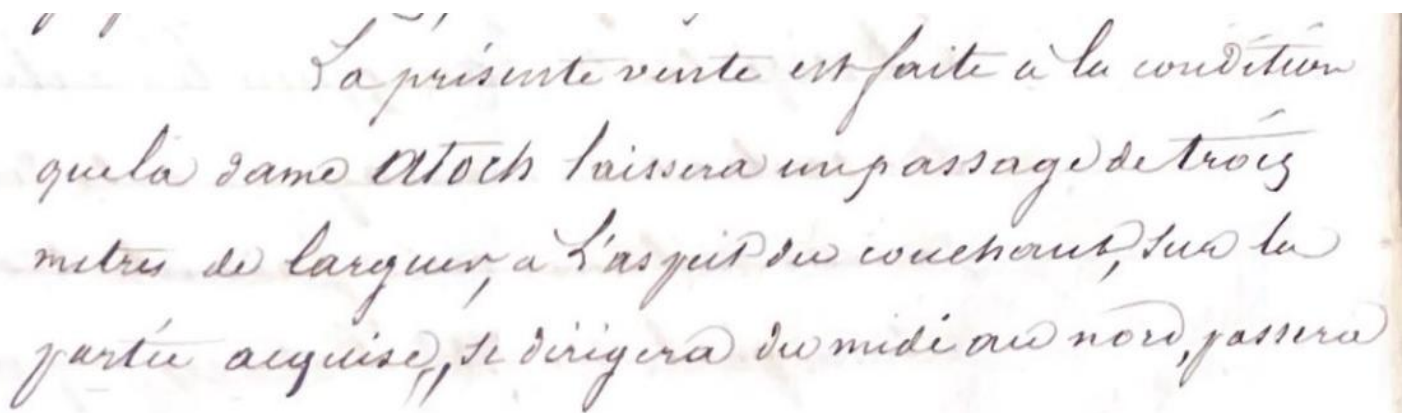 La présente vente est faite à la condition
que la dame Atoch laissera un passage de trois
metres de larguer, a L'aspect du couchant, sur la
partie acquise, se dirigera du midi au nord, passera